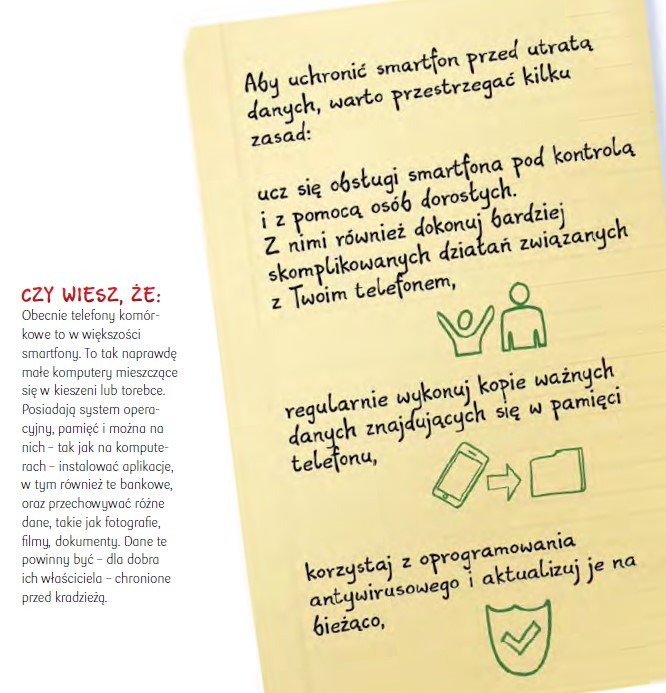 Aby uchronić smartfon przed utratą
danych, warto przestrzegać kilku
zasad:
ucz się obsługi smartfona pod kontrolą
i z pomocą osób dorosłych.
Z nimi również dokonuj bardziej
skomplikowanych działań związanych
z Twoim telefonem,
regularnie wykonuj kopie ważnych
danych znajdujących się w pamięci
telefonu,
korzystaj z oprogramowania
antywirusowego i aktualizuj je na
bieżąco,
CZY WIESZ, ŻE:
Obecnie telefony komór-
kowe to w większości
smartfony. To tak naprawdę
małe komputery mieszczące
się w kieszeni lub torebce.
Posiadają system opera-
cyjny, pamięć i można na
nich – tak jak na kompute-
rach – instalować aplikacje,
w tym również te bankowe,
oraz przechowywać różne
dane, takie jak fotografie,
filmy, dokumenty. Dane te
powinny być – dla dobra
ich właściciela – chronione
przed kradzieżą.